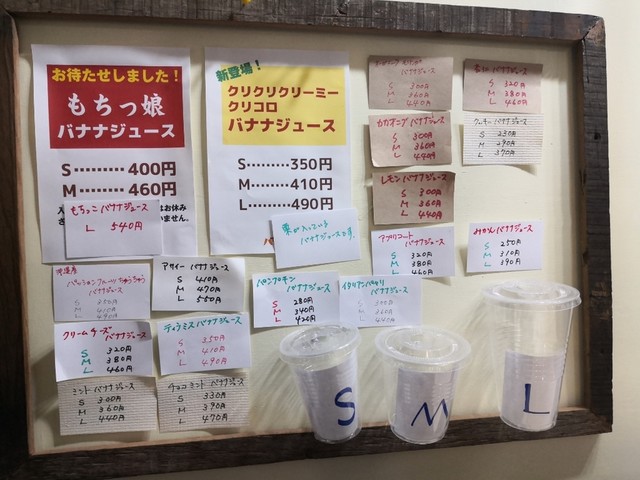 お待たせしました！
もちっ娘
バナナジュース
S………400円
M………460円
もちっこ バナナジュース
L 540円
新登場！
クリクリクリーミー
クリコロ
バナナジュース
S………350円
M………410円
L………490円
栗が入っている
バナナジュースです。
バナナジュース
S 300円
M 360円
L 440円
バナナジュース
S 320円
M 380円
L 460円
カカオニブ バナナジュース
S 300円
M 360円
L 440円
クッキー バナナジュース
S 230円
M 290円
L 370円
レモン バナナジュース
S 300円
M 360円
L 440円
アプリコット
バナナジュース
S 320円
M 380円
L 460円
みかん バナナジュース
S 250円
M 310円
L 390円
バナナジュース
S 350円
M 410円
L 490円
アサイー バナナジュース
S 410円
M 470円
L 550円
バナナジュース
S 280円
M 340円
L 420円
バナナジュース
S 300円
M 360円
L 440円
クリームチーズ
バナナジュース
S 320円
M 380円
L 460円
ティラミス バナナジュース
S 350円
M 410円
L 490円
ミント バナナジュース
S 300円
M 360円
L 440円
チョコミント バナナジュース
S 330円
M 390円
L 470円
S
M
L